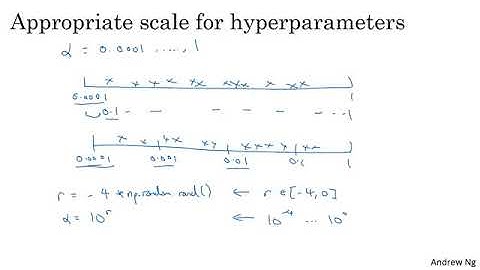 Appropriate scale for hyperparameters
α = 0.0001 , ..., 1
0.0001 1
0.1 - - - - - - ... 1
0.0001 0.001 0.01 0.1 1
r = -4 * np.random.rand() ← r ∈ [-4, 0]
α = 10^r ← 10^-4 ... 10^0
Andrew Ng